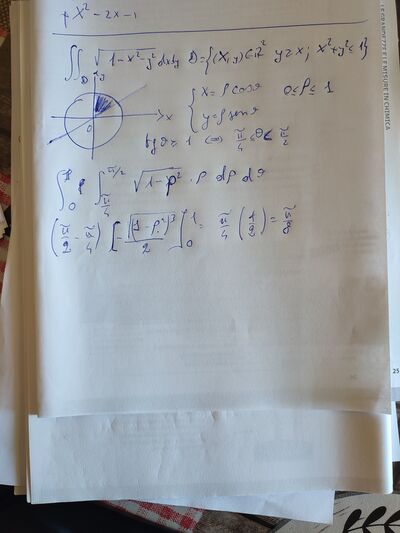 x² - 2x - 1
∬_D √(1-x²-y²) dxdy D = {(x,y) ∈ ℝ² y ≥ x; x²+y² ≤ 1}
y
x
0
{ x = ρ cos ϑ 0 ≤ ρ ≤ 1
y = ρ sen ϑ
tg ϑ ≥ 1 ⇔ π/4 ≤ ϑ < π/2
∫₀¹ ∫_{π/4}^{π/2} √(1-ρ²) · ρ dρ dϑ
(π/2 - π/4) [-√(1-ρ²)³/2]₀¹ = π/4 (1/2) = π/8
LE GRANDEZZE E LE MISURE IN CHIMICA
25